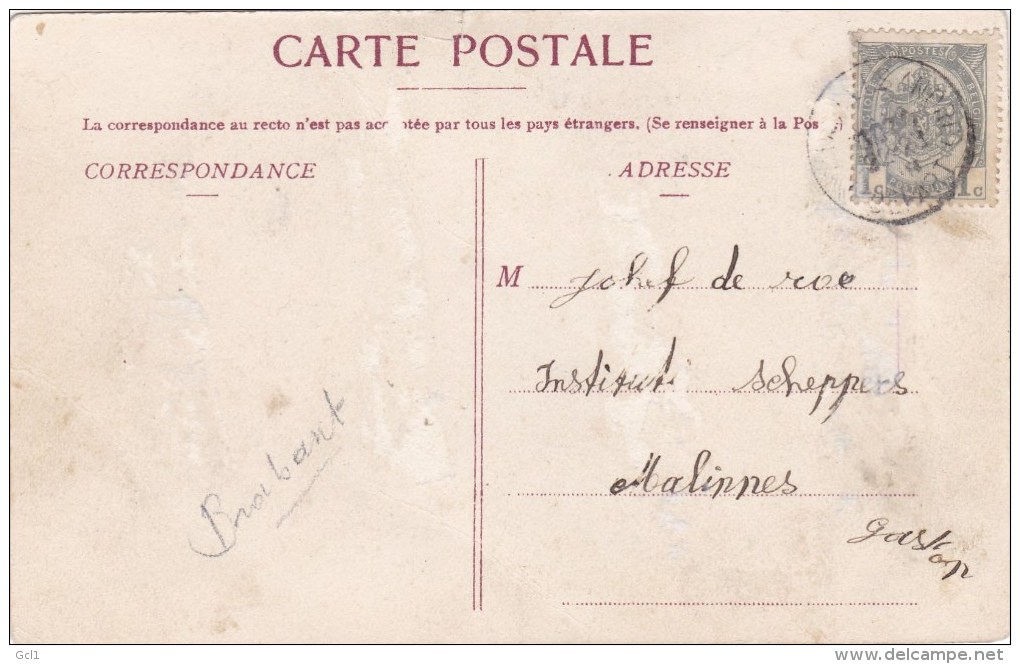 CARTE POSTALE
La correspondance au recto n'est pas acceptée par tous les pays étrangers. (Se renseigner à la Pos
CORRESPONDANCE
ADRESSE
POSTES
1c 1c
M Johef de roe
Institut Scheppers
Malinnes
Gaston
Brabant
Gcl1
www.delcampe.net